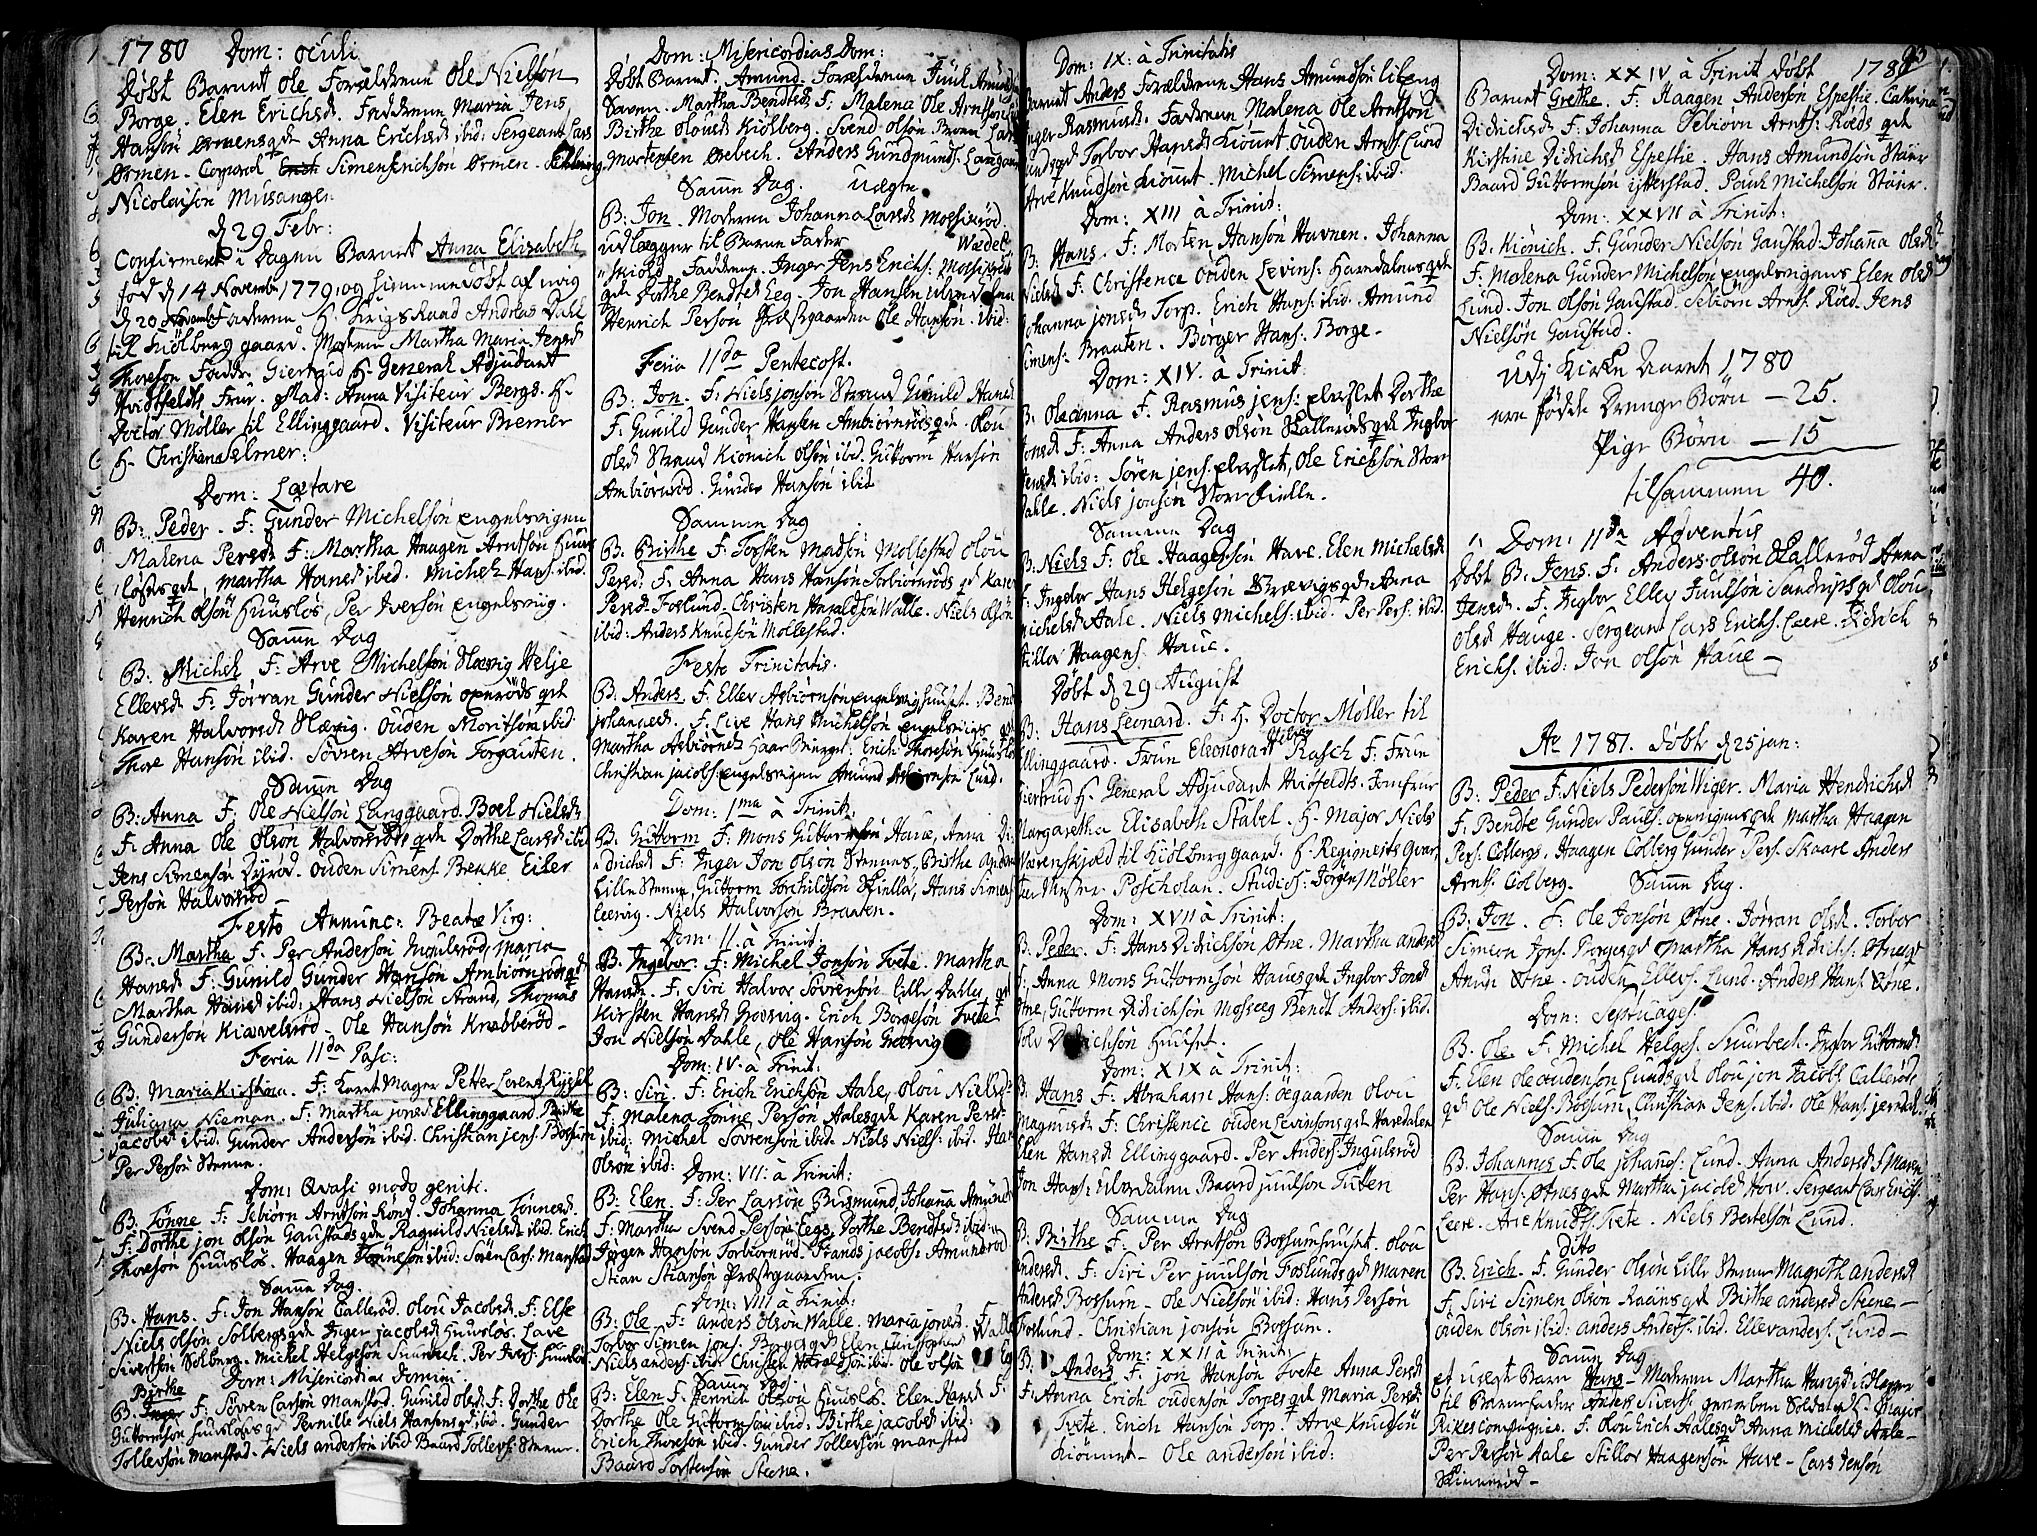 1780 Dom: Oculi
Døbt Barnet Ole Forældrene Ole Nielsøn
Borge. Elen Erichsd. Fadderne Maria Jens
Hansøn Ørmens qd Anna Erichsd ibid: Sergeant Lars
Ørmen. Corporal Simen Erichsøn Ørmen.
Nicolaisøn Musanger.
d 29 Febr:
Confirmeret i Dagen Barnet Anna Elisabeth
fød d 14 Novembr 1779 og hiemmedøbt af mig
d 20 Novembr Fadderne H. Krigs Raad Andreas Dahl
til Kiølberg gaard. Moderen Martha Maria Jensd
Thoresøn Fadder Giertrud H. General Adjudant
Hvidtfeldts Frue. Mad: Anna Visiteur Bergs. H.
Doctor Møller til Ellinggaard. Visiteur Bremer
H. Christian Elmer:
Dom: Lætare
B: Peder. F: Gunder Michelsøn Engelsvigen
Malena Persd F: Martha Haagen Arntsøn Huus
løses qd, Martha Hansd ibid. Michel Hans. ibid.
Henrich Olsøn Huusløs, Per Iversøn Engelsvig.
Samme Dag
B: Michel F: Arve Michelsøn Slævig Helje
Ellevsd F: Jørran Gunder Nielsøn Opnrøds qd
Karen Halvorsd Slævig. Ouden Moritsøn ibid
Thore Hansøn ibid. Søvren Arvesøn Torgauten.
Samme Dag
B: Anna F: Ole Nielsøn Langgaard. Boel Nielsd.
F: Anna Ole Olsøn Halvorsrøds qd Dorthe Larsd ibid
Jens Simensøn Dyrød. Ouden Simens. Bekke Eiler
Persøn Halvorsrød
Festo Annunc: Beatæ Virg:
B. Martha F. Per Andersøn Ingulsrød, Maria
Hansd F: Gunild Gunder Hansøn Ambiørnrøds qd
Martha Hansd ibid, Hans Nielsøn Strand, Thomas
Gundersøn Kiævelsrød - Ole Hansøn Knabberød -
Feria IIda Pasc:
B. Maria Kirstina. F: Petter Lorents
Juliana Nieman. F: Martha Jonsd Ellinggaard Birthe
Jacobsd ibid. Gunder Andersøn ibid. Christian Jens. Bossum
Per Persøn Stenne.
Dom: Qvasi modo geniti.
B. Tønne F: Sebiørn Arntsøn Rønd. Johanna Tønnesd.
F: Dorthe Jon Olsøn Gaustads qd Ragnild Nielsd ibid. Erich
Thoresøn Huusløs. Haagen Tønnesøn ibid: Søren Lars. Manstad
Samme Dag.
B. Hans. F: Jon Hansøn Callerød. Olou Jacobsd. F: Else
Niels Olsøn Solbergs qd Inger Jacobsd Huusløs. Lave
Sivertsøn Solberg. Michel Helgesøn Snurbech. Per Ivers. Huusløs
Dom: Misericordias Domini.
Birthe
B. F: Søvren Larsøn Manstad. Gunild Olsd: F: Dorthe Ole
Guttormsøn Huusløses qd Pernille Niels Hansens qd ibid. Gunder
Tollevsøn Manstad. Niels Andersøn ibid Baard Tollevs. Stenne.
Dom: Misericordias Dom:
Døbt Barnet. Amund. Forældrene Juul
Savnn. Martha Bendtsd: F: Malena Ole Arntsøn
Birthe Olousd Kiølberg. Svend Olsøn Lars
Mortensen Ørebech. Anders Gundmunds. Langgaard
Samme Dag. Uægte
B: Jon. Moderen Johanna Larsd Mossikrød.
Udlægger til Barne Fader Wedel
skiold. Fadderne. Inger Jens Erichs: Mossikrød
qd Dorthe Bendtsd Eeg. Jon Hansen
Henrich Persøn Præstgaarden Ole Hansøn. ibid:
Feria IIda Pentecost.
B: Jon. F: Niels Jonsøn Strand Gunild Hansd
F: Gunild Gunder Hansen Ambiørnrøds qd. Olou
Olsd Strand Kiønich Olsøn ibid. Guttorm Hansøn
Ambiørnrød. Gunder Hansøn ibid
Samme Dag
B: Birthe F: Torsten Madsøn Mollestad Olou
Persd: F: Anna Hans Hansøn Torbiørnrøds qd Karen
Persd. Foslund. Christen Haraldsøn Walle. Niels Olsøn
ibid: Anders Knudsøn Mollestad.
Festo Trinitatis.
B: Anders. F: Ellev Asbiørnsøn Engelsvighuuset. Bendt
Johannesd. F: Live Hans Michelsøn Engelsvigs qd
Martha Asbiørnsd Haar Burgel. Erich Thoresøn Huusløs
Christian Jacobs: Engelsvigen Amund Asbiørnsøn Lund.
Dom: Ima à Trinit.
B: Gutorm F: Mons Gutormsøn Haue, Anna Di
drichsd F: Inger Jon Olsøn Stennes, Birthe Anders
Lille Stenne Guttorm Torchildsøn Skiellov, Hans Simens
Leervig. Niels Halvorsøn Braaten.
Dom: II. à Trinit
B. Ingebor: F: Michel Jonsøn Tvete. Martha
Hansd. F: Siri Halvor Søvrensøn Lille Dalles qd
Kirsten Hansd Groevig. Erich Borgesøn Tvete
Jon Nielsøn Dahle, Ole Hansøn Groevig
Dom: IV. à Trinit:
B: Siri. F: Erich Erichsøn Aale, Olou Nielsd:
F: Malena Persøn Aales qd Karen Persd
ibid: Michel Søvrensøn ibid. Niels Niels: ibid. Hans
Olsøn ibid:
Dom: VII: à Trinit:
B: Elen. F: Per Larsøn Johanna Amunds
F: Martha Svend Persøn Eegs, Dorthe Bendtsd ibid.
Jørgen Hansøn Torbiørnrød. Frands Jacobs: Amundrød
Stian Stiansøn Præstgaarden.
Dom: VIII à Trinit:
B: Ole F: Anders Olsøn Walle. Maria Jonsd. F:
Torbor Simen Jons. qd Elen Christophersd Walle
Niels Anders. ibid Christen Haraldsøn ibid. Ole Olsøn
Samme Dag.
B: Elen F: Henrich Olsøn Huusløs. Elen Hansd F:
Dorthe Ole Guttormsøn ibid. Birthe Jacobsd ibid:
Erich Thoresøn ibid. Gunder Tollevsøn Manstad
Baard Torstensøn Steene.
Dom: IX: à Trinitatis
Barnet Anders Forældrene Hans Amundsøn Libeng
Inger Rasmusd. Fadderne Malena Ole Arntsøn
qd Torbor Hansd Kiøunt Ouden Arnts. Lund
Arve Knudsøn Kiøunt. Michel Simens: ibid.
Dom: XIII à Trinit:
B: Hans. F: Morten Hansøn Havnen. Johanna
Nielsd F: Christence Ouden Levins: Haredalens qd
Johanna Jonsd Torp. Erich Hans: ibid. Amund
Simens: Braaten. Børger Hans: Borge.
Dom: XIV. à Trinit:
B. Oleanna F. Rasmus Jens: Dorthe
Jonsd F: Anna Anders Olsøn Skallerøds qd Ingbor
Jensd ibid: Søren Jens. Ole Erichsøn Store
Dahle. Niels Jonsøn Store Kielle.
Samme Dag
B. Niels F: Ole Haagensøn Have. Elen Michelsd
F: Ingebor Hans Helgesøn qd Anna
Michelsd Aale. Niels Michels: ibid. Per Pers: ibid.
Stillov Haagens. Haue.
Døbt d 29 August
B: Hans Leonard. F: H. Doctor Møller til
Ellinggaard. Frue Eleonora Rasch F: Frue
Giertrud H. General Adjudant Hvidfeldts. Jomfrue
Margaretha Elisabeth Stabel. H. Major Niels
Werenskiold til Kiølberg gaard. H. Regiments Qvar
teer Mester Poscholan. Studios: Jørgen Møller
Dom: XVII à Trinit:
B. Peder. F: Hans Didrichsøn Øtne. Martha Andersd
F: Anna Mons Guttormsøn Haues qd Ingbor Jonsd
Øtne, Guttorm Didrichsøn Mosseeg Bendt Anders: ibid.
Tolv Didrichsøn Huuset.
Dom: XIX à Trinit:
B: Hans F: Abraham Hans: Øegaarden Olou
Magnusd F: Christence Ouden Levinsøns qd Haredalen
Elen Hansd Ellinggaard. Per Anders. Ingulsrød
Jon Hans: Ulvedalen Baard Juulsøn Tuten
Samme Dag
B. Birthe F. Per Arntsøn Bossumhuuset. Olou
Andersd. F: Siri Per Juulsøn Foslunds qd Maren
Andersd Bossum - Ole Nielsøn ibid: Hans Persøn
Foslund. Christian Jonsøn Bossum.
Dom: XXII à Trinit:
B: Anders F: Jon Hansøn Tvete Anna Persd
F: Anna Erich Oudensøn Torpes qd Maria Persd
Tvete. Erich Hansøn Torp. Arve Knudsøn
Kiøunt - Ole Andersøn ibid:
93
Dom: XXIV à Trinit døbt 1780
Barnet Grethe. F. Haagen Andersøn Espetie. Cathrina
Didrichsd F: Johanna Sebiørn Arnts: Røeds qd
Kirstine Didrichsd Espetie. Hans Amundsøn Støur
Baard Guttormsøn Ytterstad. Poul Michelsøn Støur.
Dom: XXVII à Trinit:
B. Kiønich. F. Gunder Nielsøn Gaustad Johanna Olsd
F: Malena Gunder Michelsøn Engelsvigens Elen Olsd
Lund. Jon Olsøn Gaustad. Sebiørn Arnts. Røed. Jens
Nielsøn Gaustad.
Udj Kirke Aaret 1780
ere fødde Drenge Børn - 25.
Pige Børn - 15
tilsammen 40.
Dom: IIda Adventus
Døbt B. Jens. F: Anders Olsøn Skallerød Anna
Jensd. F: Ingbor Ellev Juulsøn Sundrips qd Olou
Olsd Hauge. Sergeant Lars Erichs. Leere. Didrich
Erichs. ibid: Jon Olsøn Haue -
Ao 1781. døbt d 25 jan:
B: Peder F. Niels Pedersøn Wiger. Maria Hendrichsd
F: Bendte Gunder Pauls: qd Martha Haagen
Pers. Colbergs. Haagen Colberg Gunder Pers. Skaare Anders
Arnts. Colberg. Samme Dag.
B: Jon. F: Ole Jonsøn Øtne. Jørran Olsd. Torbor
Simeon Jons. Borges qd Martha Hans Didrichs: Øtnes qd
Amun Øtne. Ouden Ellevs. Lund. Anders Hans. Øtne.
Dom: Septuages.
B. Ole. F. Michel Helges. Snurbech. Ingbor Guttormsd
F. Elen Ole Oudensøn Lunds qd Olou Jon Jacobs Callerøds
qd Ole Niels. Bossum Christian Jens. ibid. Ole Hans.
Samme Dag
B. Johannes F. Ole Johanes: Lund. Anna Andersd F. Maren
Per Hans. Øtnes qd Martha Jacobsd Hov. Sergeant Lars Erichs.
Leere. Arve Knuds. Tvete. Niels Bertelsøn Lund.
Dito
B. Erich. F. Gunder Olsøn Lille Stenne Magreth Andersd
F. Siri Simen Olsøn qd Birthe Andersd Steene -
Ouden Olsøn ibid: Anders Anders. ibid. Ellev Anders. Lund -
Samme Dag
Et uægte Barn Hans - Moderen Martha Hansd udlegger
til Barnefader Anders Siverts. Soldat ved Major
Rikes Compagnie. F. Olou Erich Aales qd Anna Michelsd Aale -
Per Persøn Aale Stillov Haagensøn Have - Lars Jensøn
Skinnerød -